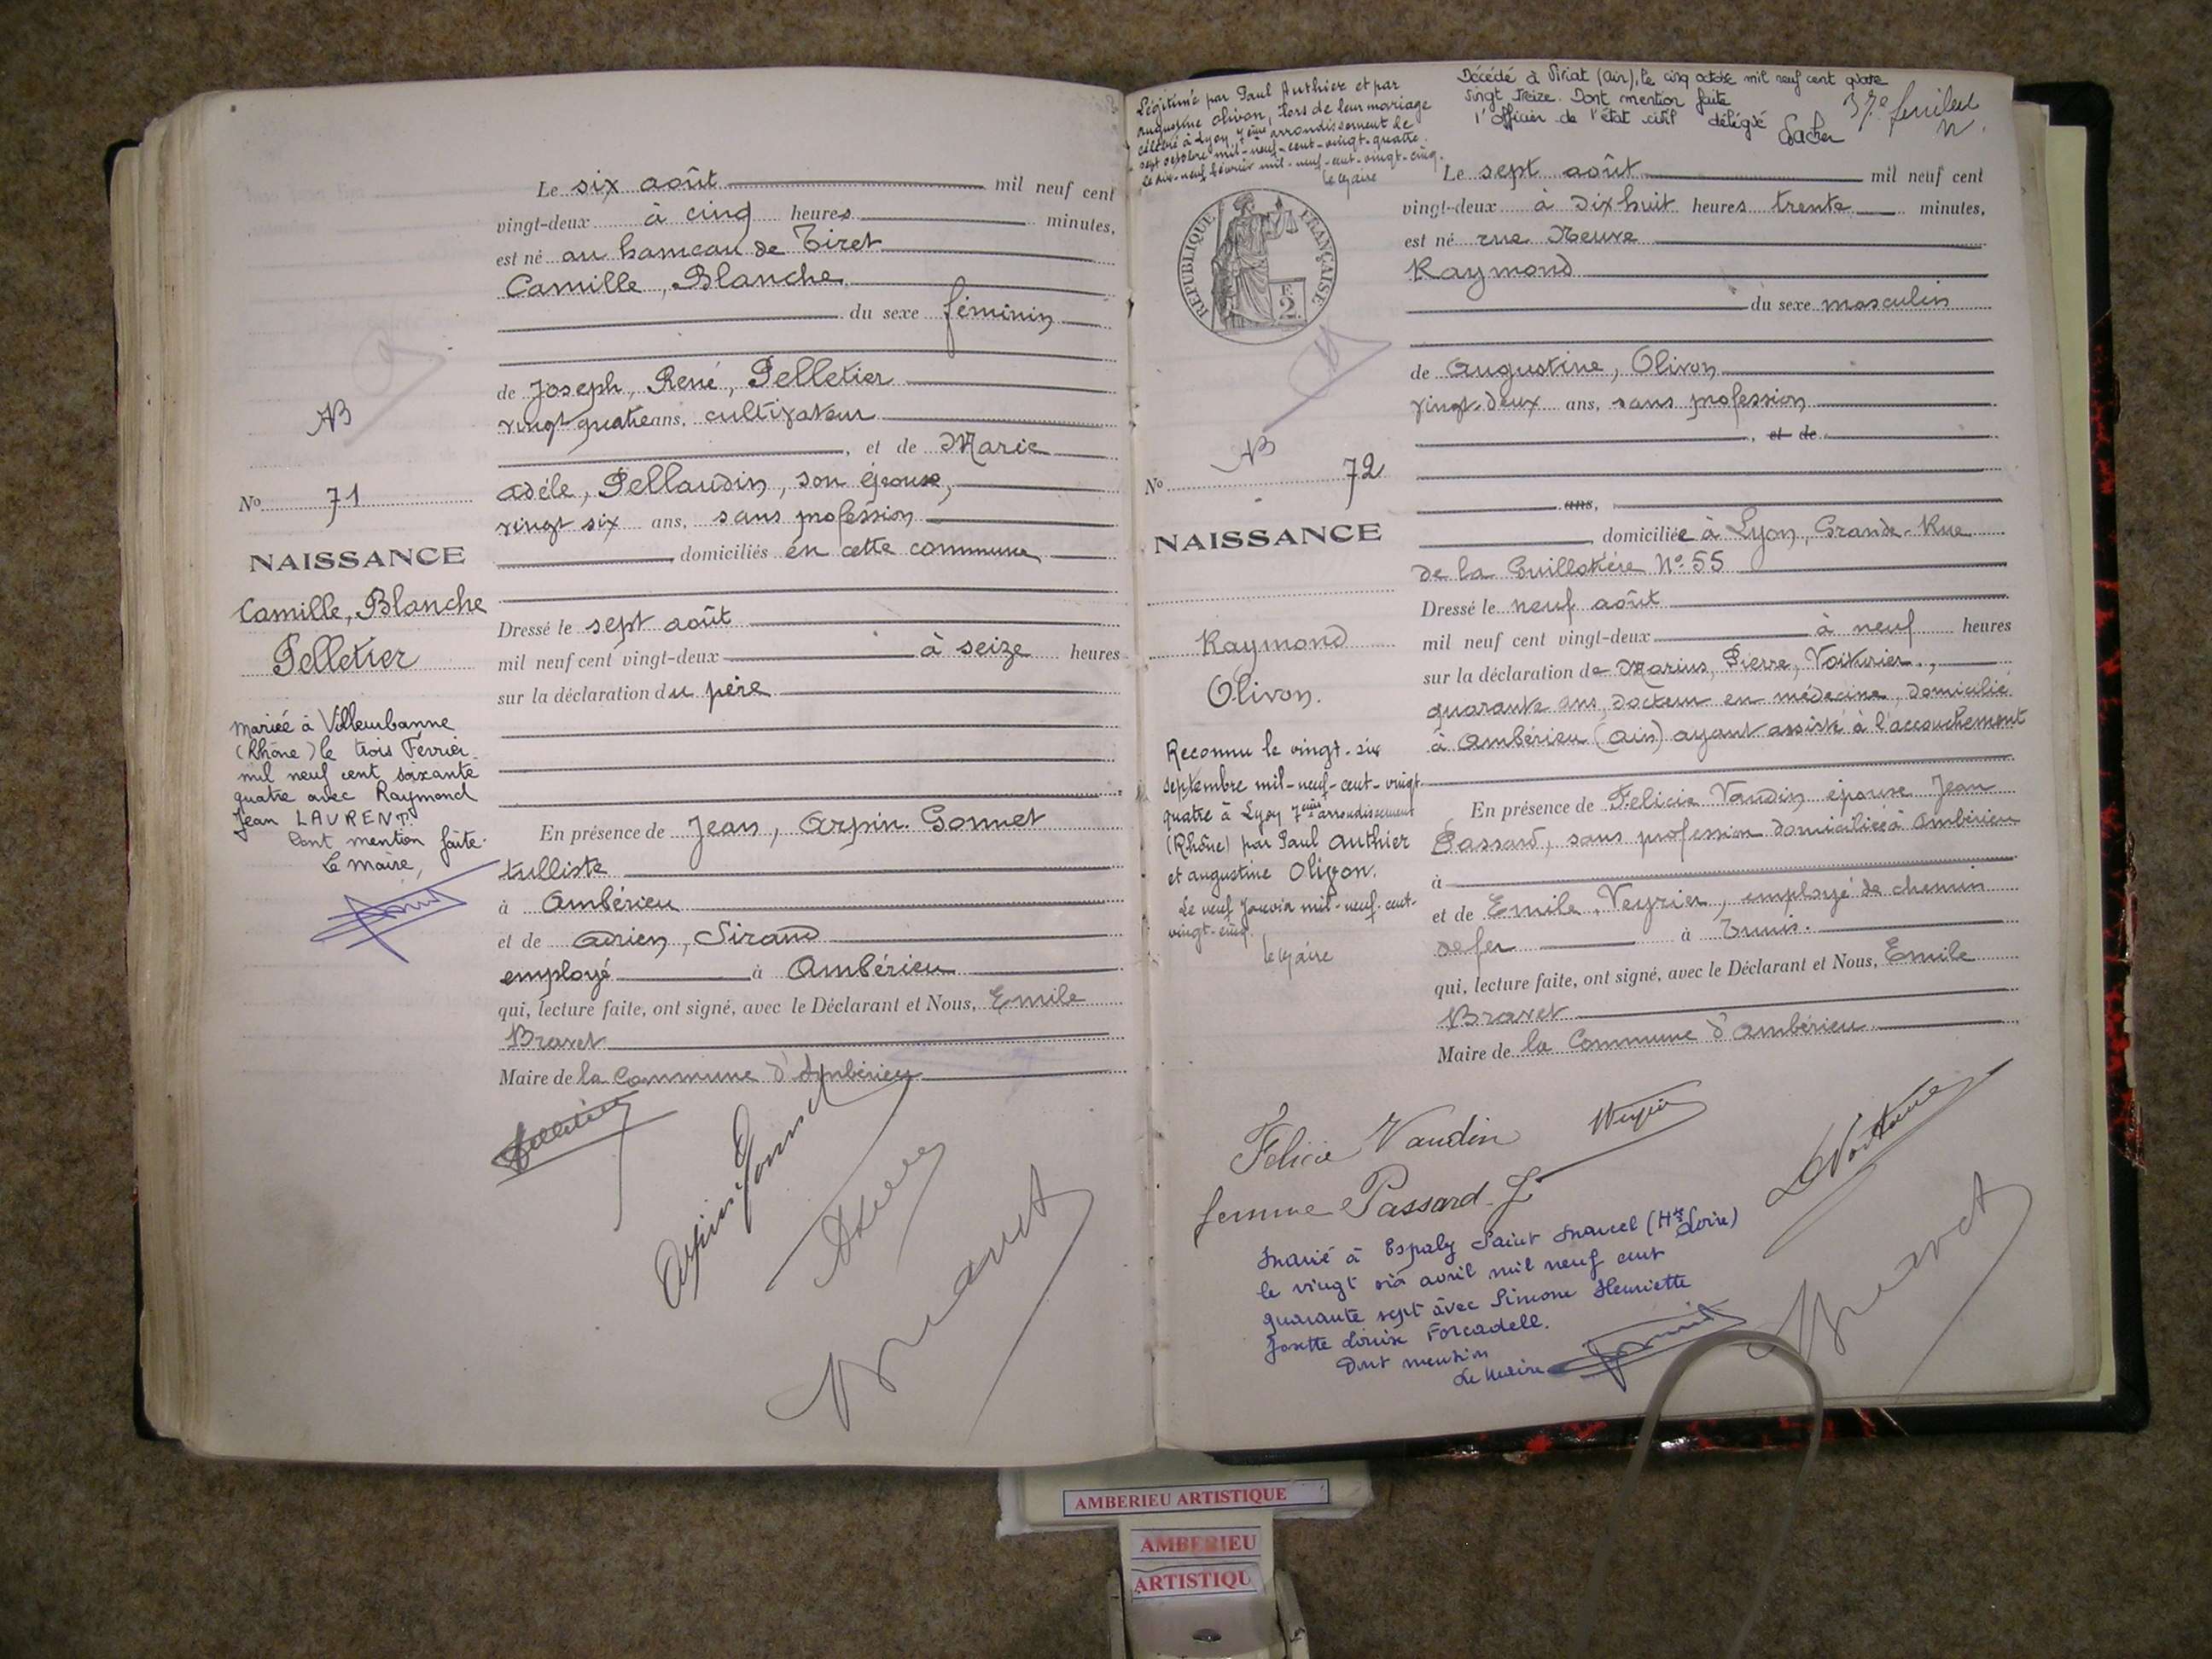 Le six août mil neuf cent
vingt-deux à cinq heures minutes,
est né au hameau de Tiret
Camille, Blanche
du sexe féminin
de Joseph, René, Pelletier
vingt quatre ans, cultivateur
, et de Marie
Adèle, Pellaudin, son épouse,
vingt six ans, sans profession
domiciliés en cette commune
Dressé le sept août
mil neuf cent vingt-deux à seize heures
sur la déclaration du père
En présence de Jean, Arpin-Gonnet
tulliste
à Ambérieu
et de Adrien, Sirand
employé à Ambérieu
qui, lecture faite, ont signé, avec le Déclarant et Nous, Emile
Bravet
Maire de la Commune d'Ambérieu
Pelletier
Arpin Gonnet
Bravet
No 71
NAISSANCE
Camille, Blanche
Pelletier
Mariée à Villeurbanne
(Rhône) le trois Février
mil neuf cent soixante
quatre avec Raymond
Jean LAURENT.
Dont mention faite.
Le Maire,
Légitimé par Paul Authier et par
Augustine Olivon, lors de leur mariage
célébré à Lyon, 7ème arrondissement le
sept octobre mil-neuf-cent-vingt-quatre.
Le dix-neuf février mil-neuf-cent-vingt-cinq.
Le Maire
Décédé à Viriat (Ain), le cinq octobre mil neuf cent quatre
vingt treize. Dont mention faite
l'officier de l'état civil délégué
37e feuillet
REPUBLIQUE FRANÇAISE
2
No 72
NAISSANCE
Raymond
Olivon.
Reconnu le vingt-six
septembre mil-neuf-cent-vingt-
quatre à Lyon 7ème arrondissement
(Rhône) par Paul Authier
et Augustine Olivon.
Le neuf Janvier mil-neuf-cent-
vingt-cinq.
Le Maire
Le sept août mil neuf cent
vingt-deux à dix huit heures trente minutes,
est né rue Neuve
Raymond
du sexe masculin
de Augustine, Olivon
vingt-deux ans, sans profession
, et de
ans,
domiciliée à Lyon, Grande-Rue
de la Guillotière No 55
Dressé le neuf août
mil neuf cent vingt-deux à neuf heures
sur la déclaration de Marius, Pierre, Voiturier,
quarante ans, docteur en médecine, domicilié
à Ambérieu (Ain) ayant assisté à l'accouchement
En présence de Felicie Vaudin épouse Jean
Passard, sans profession domiciliée à Ambérieu
à
et de Emile, Veyrier, employé de chemin
de fer à Tunis.
qui, lecture faite, ont signé, avec le Déclarant et Nous, Emile
Bravet
Maire de la Commune d'Ambérieu
Felicie Vaudin
femme Passard J
Veyrier
Bravet
Marié à Espaly Saint Marcel (Hte Loire)
le vingt six avril mil neuf cent
quarante sept avec Simone Henriette
Josette Louise Forcadell.
Dont mention
Le Maire
AMBERIEU ARTISTIQUE
AMBERIEU
ARTISTIQU